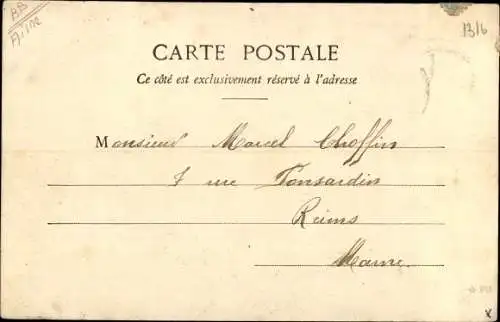 BB
Aisne
1316
CARTE POSTALE
Ce côté est exclusivement réservé à l'adresse
Monsieur Marcel Choffin
7 rue Ponsardin
Reims
Marne.
x